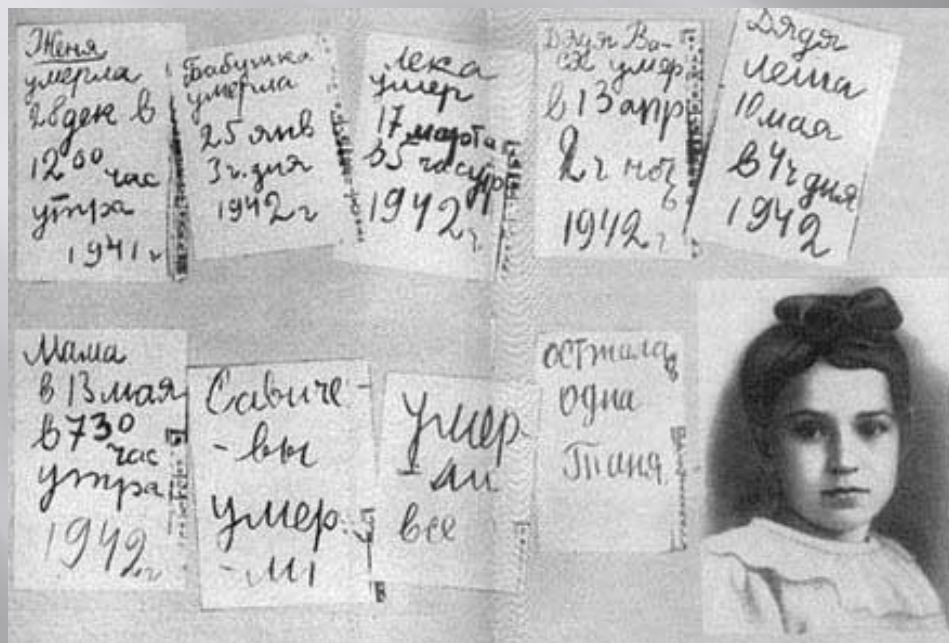 Женя
умерла
28 дек в
12 00 час
утра
1941 г
Бабушка
умерла
25 янв
3 ч. дня
1942 г
Лека
умер
17 марта
в 5 час утр
1942 г.
Дядя Ва-
ся умер
в 13 апр
2 ч ноч
1942 г
Дядя
Леша
10 мая
в 4 ч дня
1942
Мама
в 13 мая
в 730
час
утра
1942 г
Савиче-
-вы
умер
-ли
умер
-ли
все
осталась
одна
Таня